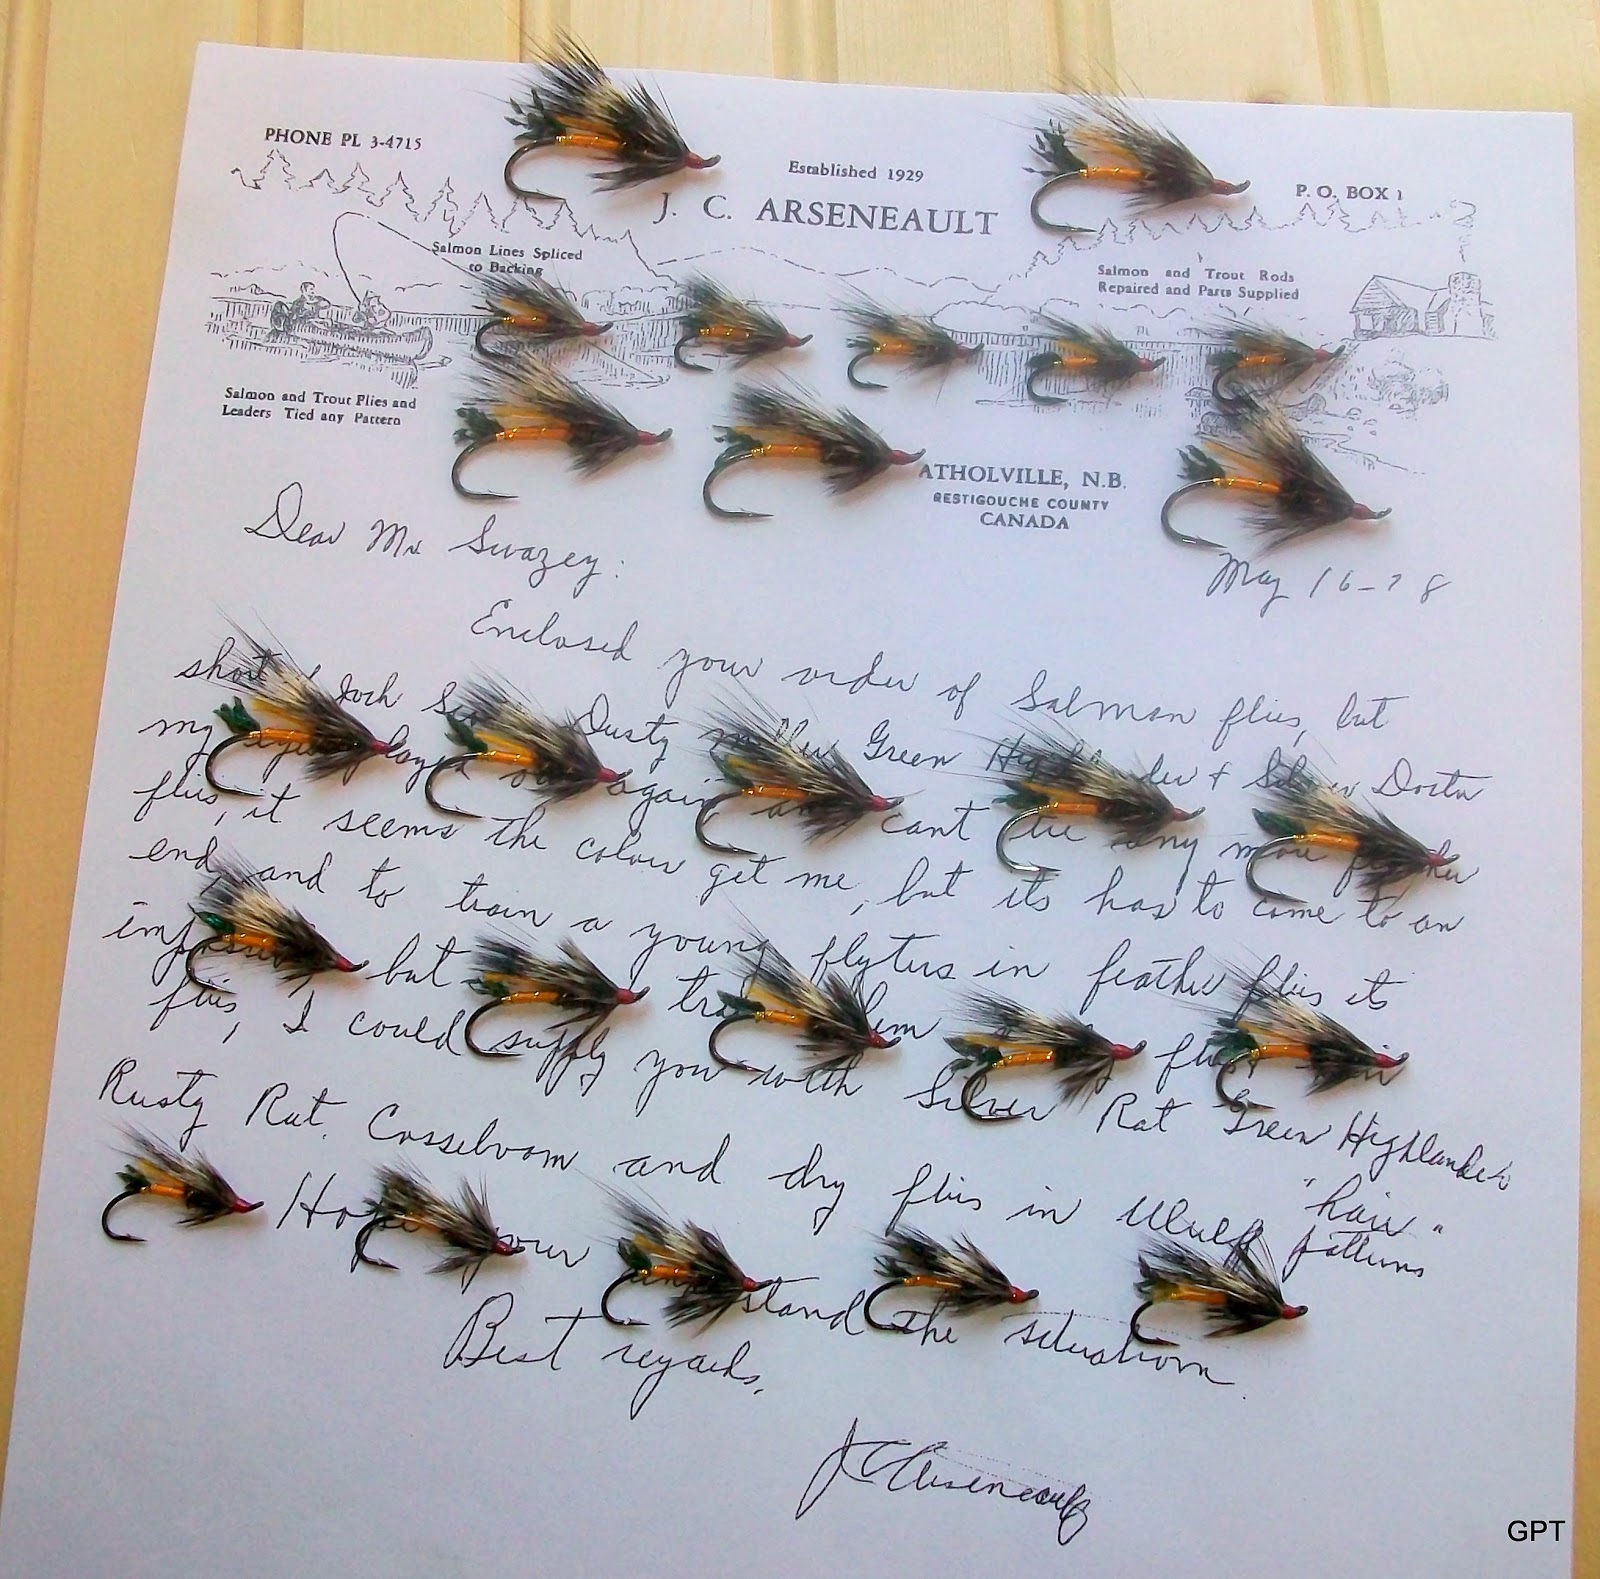 PHONE PL 3-4715
Established 1929
P. O. BOX 1
J. C. ARSENEAULT
Salmon Lines Spliced
to Backing
Salmon and Trout Rods
Repaired and Parts Supplied
Salmon and Trout Flies and
Leaders Tied any Pattern
ATHOLVILLE, N.B.
RESTIGOUCHE COUNTY
CANADA
Dear Mr Swazey:
May 16-78
Enclosed your order of Salmon flies, but
short Jock Dusty Miller Green Highlander + Silver Doctor
my eyes played out again and cant tie any more feather
flies, it seems the colour get me, but its has to come to an
end, and to train a young flytiers in feather flies its
impossible, but flies, hair
flies, I could supply you with Silver Rat Green Highlander
Rusty Rat. Cosseboom and dry flies in Wulff "hair" patterns
Hope your understand the situation.
Best regards,
J C Arseneault
GPT